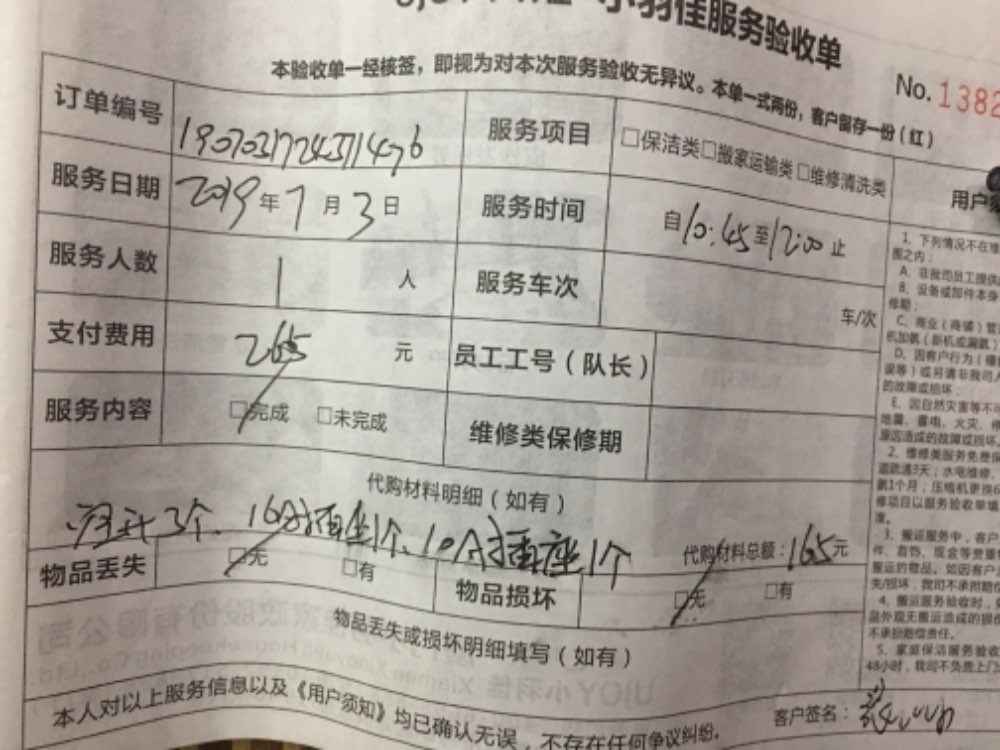 小羽佳服务验收单
本验收单一经核签，即视为对本次服务验收无异议。本单一式两份，客户留存一份（红）
No. 1382
订单编号 服务项目 □保洁类□搬家运输类□维修清洗类
服务日期 2019年7月3日 服务时间 自10:45至12:00止
服务人数 1人 服务车次 车/次
支付费用 265元 员工工号（队长）
服务内容 □完成 □未完成 维修类保修期
代购材料明细（如有）
空开3个、16A插座1个、10A插座1个 代购材料总额：165元
物品丢失 □无 □有 物品损坏 □无 □有
物品丢失或损坏明细填写（如有）
本人对以上服务信息以及《用户须知》均已确认无误，不存在任何争议纠纷。
客户签名：
用户
1、下列情况不在维
围之内：
A、非我司员工提供
B、设备或部件本身
修期；
C、商业（商铺）管
机加氨（新机或漏氨）
D、因客户行为（
误等）或另请非我司人
的故障或损坏；
E、因自然灾害等不
地震、雷电、火灾、
原因造成的故障或损坏
2、维修类服务免费保
道疏通3天；水电维修、
氨1个月；压缩机更换6
修项目以服务验收单填
准。
3、搬运服务中，客户
件、首饰、现金等贵重
搬运的物品。如因客户
失/损坏，我司不承担赔
4、搬运服务验收时，
品外观无搬运造成的损
不承担赔偿责任。
5、家庭保洁服务验收
48小时，我司不负责上门